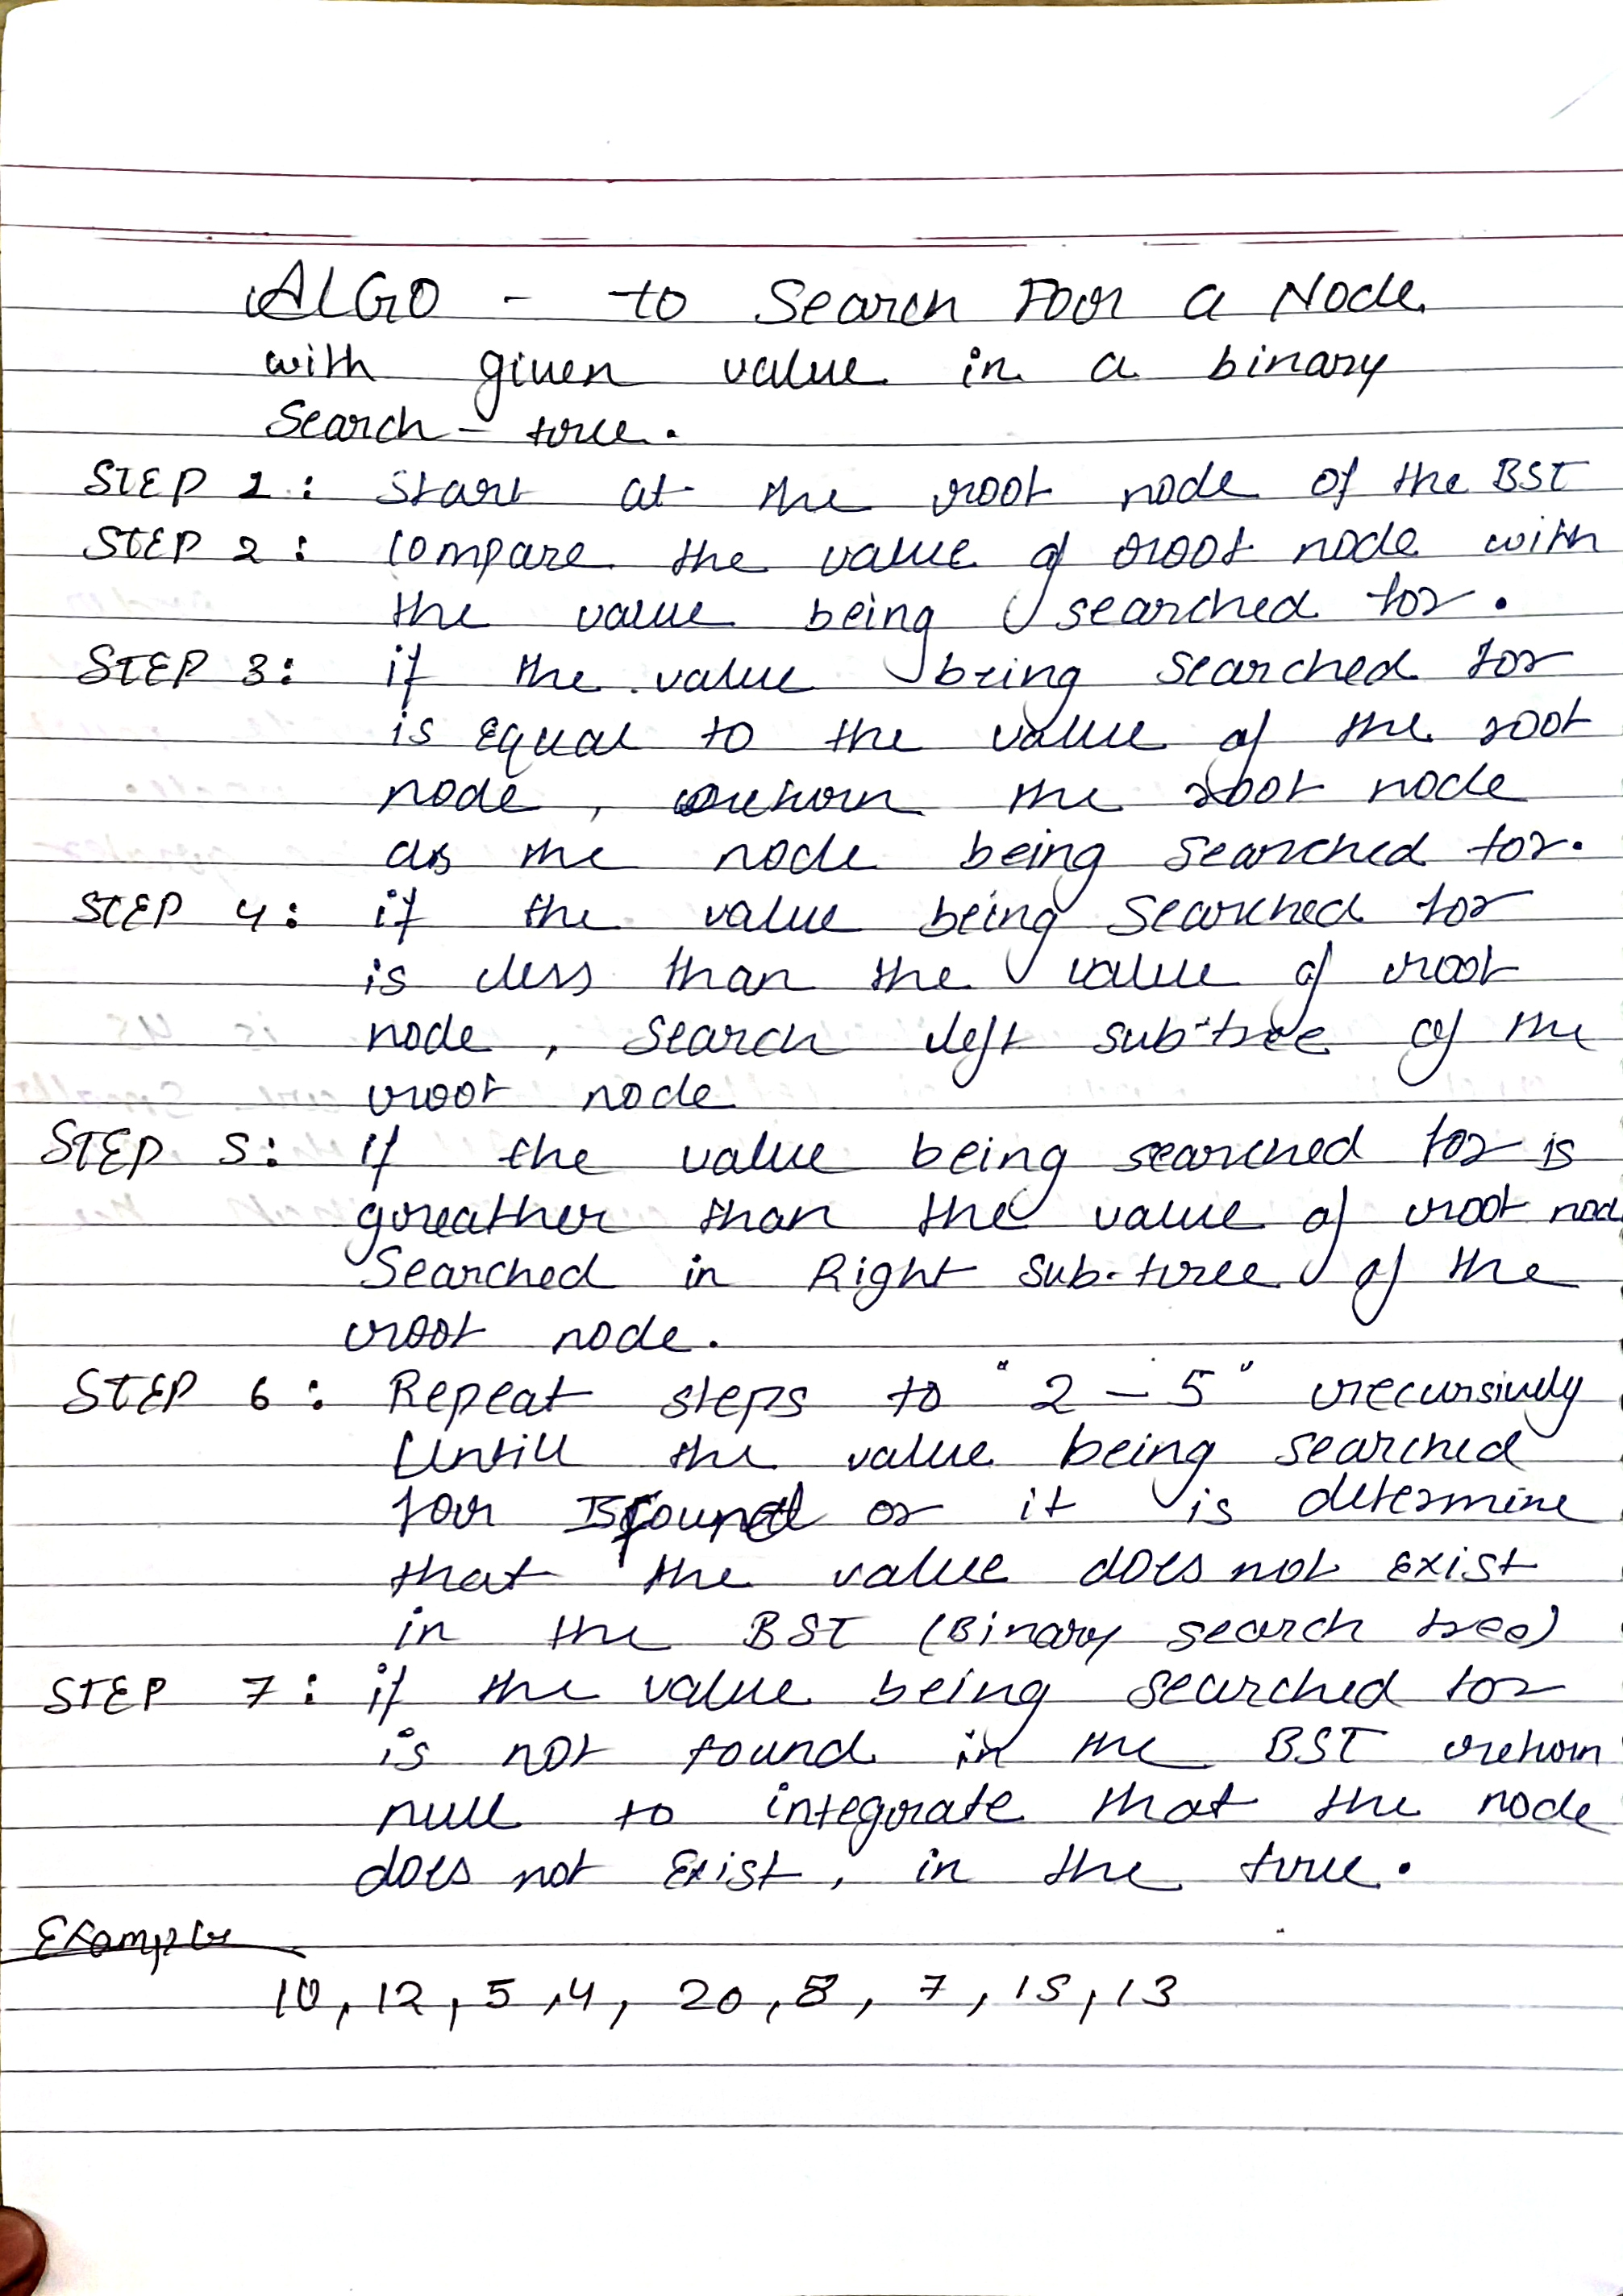 ALGO - to Search For a Node
with given value in a binary
Search - tree.
STEP 1 : Start at the root node of the BST
STEP 2 : Compare the value of root node with
the value being searched for.
STEP 3 : if the value being searched for
is equal to the value of the root
node, return the root node
as the node being searched for.
STEP 4 : if the value being searched for
is less than the value of root
node, search left sub-tree of the
root node
STEP 5 : if the value being searched for is
greather than the value of root nod
Searched in Right sub-tree of the
root node.
STEP 6 : Repeat steps to "2 - 5" recursively
Untill the value being searched
for Is found or it is determine
that the value does not exist
in the BST (Binary search tree)
STEP 7 : if the value being searched for
is not found in the BST return
null to integrate that the node
does not Exist, in the tree.
Example
10, 12, 5, 4, 20, 8, 7, 15, 13